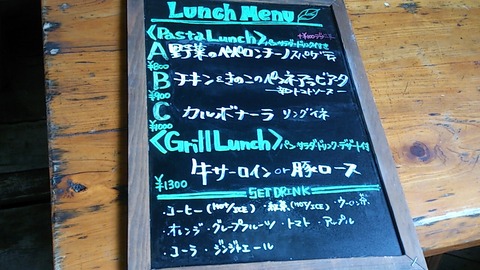 Lunch Menu
<Pasta Lunch> パン・サラダ・ドリンク付き
A 野菜のペペロンチーノスパゲティ
¥800
B チキン&きのこのペンネアラビアタ
¥900 トマトソース
C カルボナーラ リングイネ
¥1000
<Grill Lunch> パン・サラダ・ドリンク・デザート付
牛サーロイン or 豚ロース
¥1300
SET DRINK
・コーヒー(HOT/ICE) ・紅茶(HOT/ICE) ・ウーロン茶
・オレンジ ・グレープフルーツ ・トマト ・アップル
・コーラ ・ジンジャエール